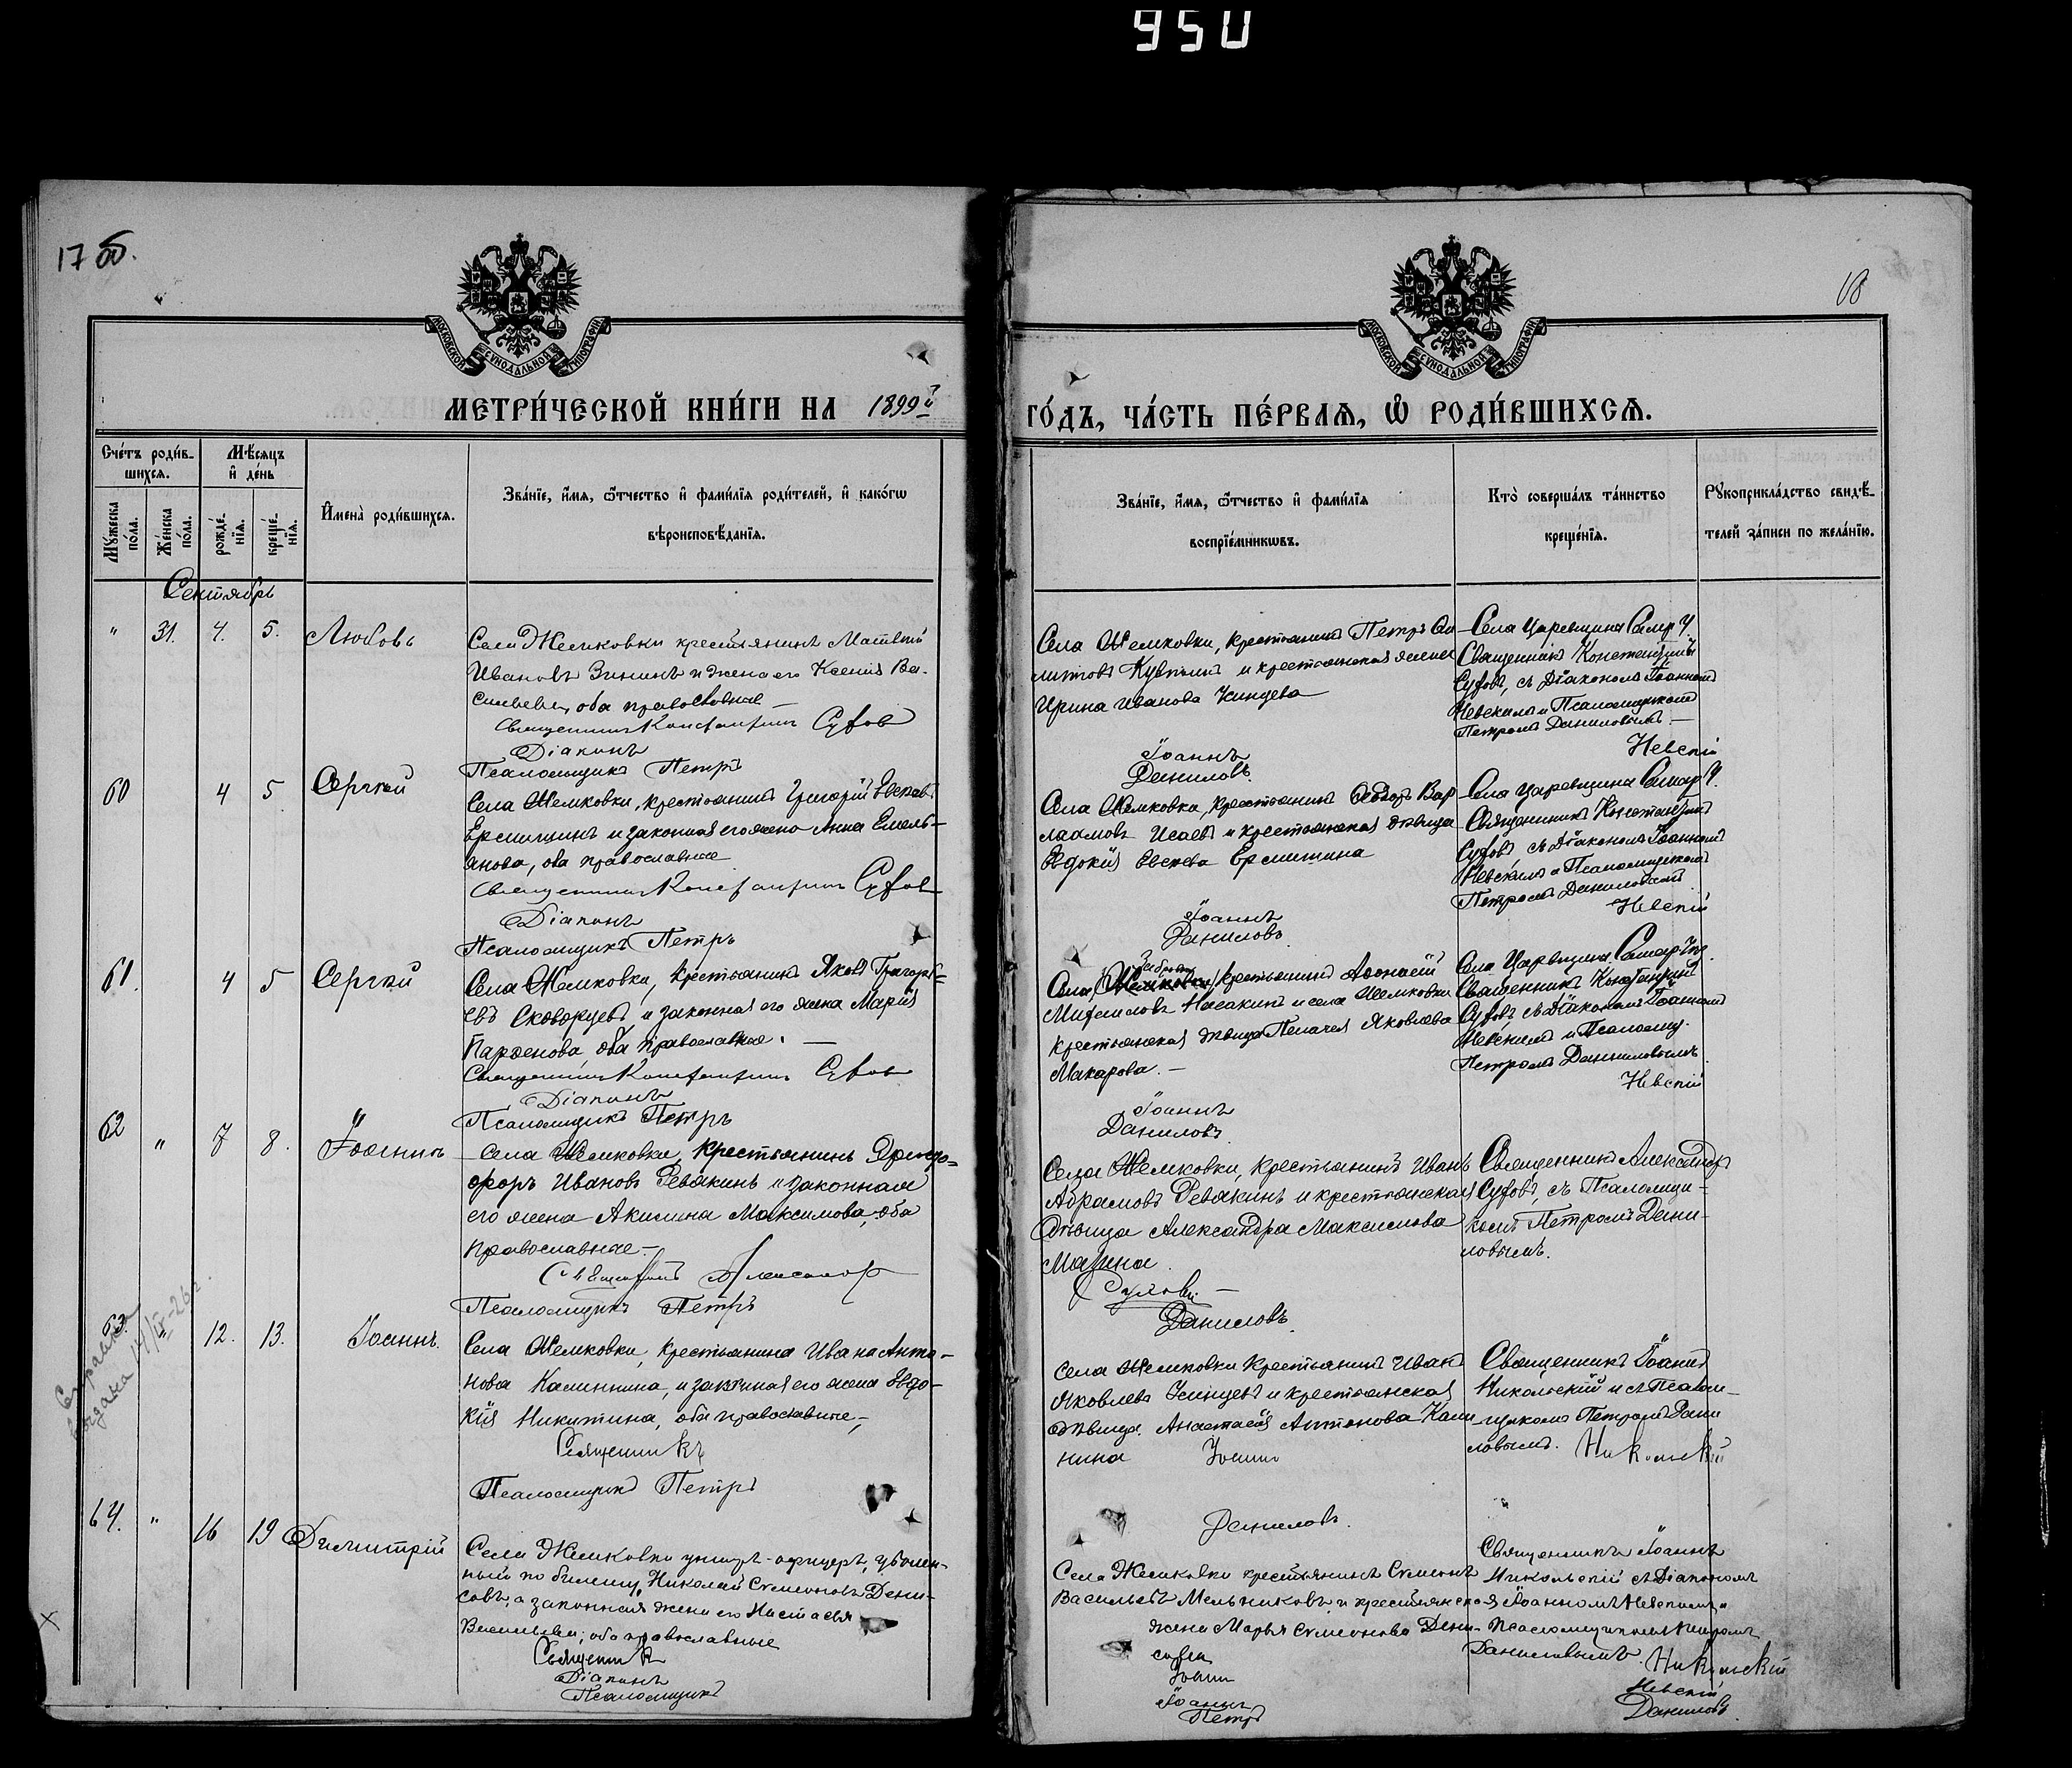 950
17 об.
18
МОСКОВСКОЙ СУНОДАЛЬНОЙ ТИПОГРАФІИ
МОСКОВСКОЙ СУНОДАЛЬНОЙ ТИПОГРАФІИ
МЕТРИ́ЧЕСКОЙ КНИ́ГИ НА 1899й
ГО́ДЪ, ЧА́СТЬ ПЕ́РВАЯ, Ѿ РОДИ́ВШИХСЯ.
Сче́тъ роди́в-
шихся.
Мѣ́сяцъ
и҆ де́нь
Му́жеска
по́ла.
Же́нска
по́ла.
рожде́-
нїя.
креще́-
нїя.
И҆мена̀ роди́вшихся.
Зва́нїе, и҆́мя, ѻ҆́тчество и҆ фами́лїя роди́телей, и҆ како́гѡ
вѣроисповѣ́данїя.
Зва́нїе, и҆́мя, ѻ҆́тчество и҆ фами́лїя
воспрїе́мникѡвъ.
Кто̀ соверша́лъ та́инство
креще́нїя.
Рꙋкоприкла́дство свидѣ́-
телей за́писи по жела́нїю.
Сентябрь
" 31. 4. 5. Любовь
Села Жемковки крестьянинъ Матвѣй
Ивановъ Зининъ и жена его Ксенія Ва-
сильева, оба православные
Священникъ Константинъ Суховъ
Діаконъ
Псаломщикъ Петръ
Села Жемковки, крестьянинъ Петръ
и крестьянская жена
Ирина Иванова
Іоаннъ
Даниловъ
Села Царевщина Самар. у.
Священникъ Константинъ
Суховъ, съ Діакономъ Іоанномъ
Невскимъ и Псаломщикомъ
Петромъ Даниловымъ. —
Невскій
60 4 5 Сергѣй
Села Жемковки, крестьянинъ Григорій
Ермишинъ и законная его жена Анна Емель-
янова, оба православные
Священникъ Константинъ Суховъ
Діаконъ
Псаломщикъ Петръ
Села Жемковка, крестьянинъ Ѳедоръ Вар-
лаамовъ Исаевъ и крестьянская дѣвица
Евдокія Ермишина
Іоаннъ
Даниловъ
Села Царевщина Самар. у.
Священникъ Константинъ
Суховъ съ Діакономъ Іоанномъ
Невскимъ и Псаломщикомъ
Петромъ Даниловымъ
Невскій
61. 4 5 Сергѣй
Села Жемковки, крестьянинъ Яковъ Григорь-
евъ Скворцовъ и законная его жена Марія
Парѳенова, оба православные. —
Священникъ Константинъ Суховъ
Діаконъ
Псаломщикъ Петръ
Села крестьянинъ Аѳонасій
Михаиловъ и села Жемковки
крестьянская дѣвица Пелагея Яковлева
Макарова. —
Іоаннъ
Даниловъ
Села Царевщина Самар. у.
Священникъ Константинъ
Суховъ съ Діакономъ Іоанномъ
Невскимъ и Псаломщ.
Петромъ Данииловымъ
Невскій
62 " 7 8. Іоаннъ
Села Жемковки, крестьянинъ
Ивановъ Ревякинъ и законная
его жена Акилина Максимова, оба
православные. —
Священникъ Александръ
Псаломщикъ Петръ
Села Жемковки, крестьянинъ Иванъ
Абрамовъ Ревякинъ и крестьянская
Дѣвица Александра Максимова
Суховъ —
Даниловъ
Священникъ Александръ
Суховъ, съ Псаломщи-
комъ Петромъ Дани-
ловымъ.
63. " 12. 13. Іоаннъ.
Справка
выдана
Села Жемковки, крестьянина Ивана Анто-
нова Калинкина, и законная его жена Евдо-
кія Никитина, оба православные, —
Священникъ
Псаломщикъ Петръ
Села Жемковки крестьянинъ Иванъ
Яковлевъ и крестьянская
дѣвица Анастасія Антонова Кали-
нина Іоаннъ
Даниловъ.
Священникъ Іоаннъ
Никольскій и съ Псалом-
щикомъ Петромъ Дани-
ловымъ. Никольскій
64. " 16 19 Димитрій
Села Жемковки унтеръ-офицеръ, уволен-
ный по билету, Николай Симеоновъ Дени-
совъ, а законная жена его Настасья
Васильева; оба православные
Священникъ
Діаконъ
Псаломщикъ
Села Жемковки крестьянинъ Симеонъ
Васильевъ Мельниковъ, и крестьянская
жена Марья Симеонова Дени-
сова
Іоаннъ
Іоаннъ
Петръ
Священникъ Іоаннъ
Никольскій съ Діакономъ
Іоанномъ Невскимъ и
псаломщикомъ Петромъ
Даниловымъ. Никольскій
Невскій
Даниловъ